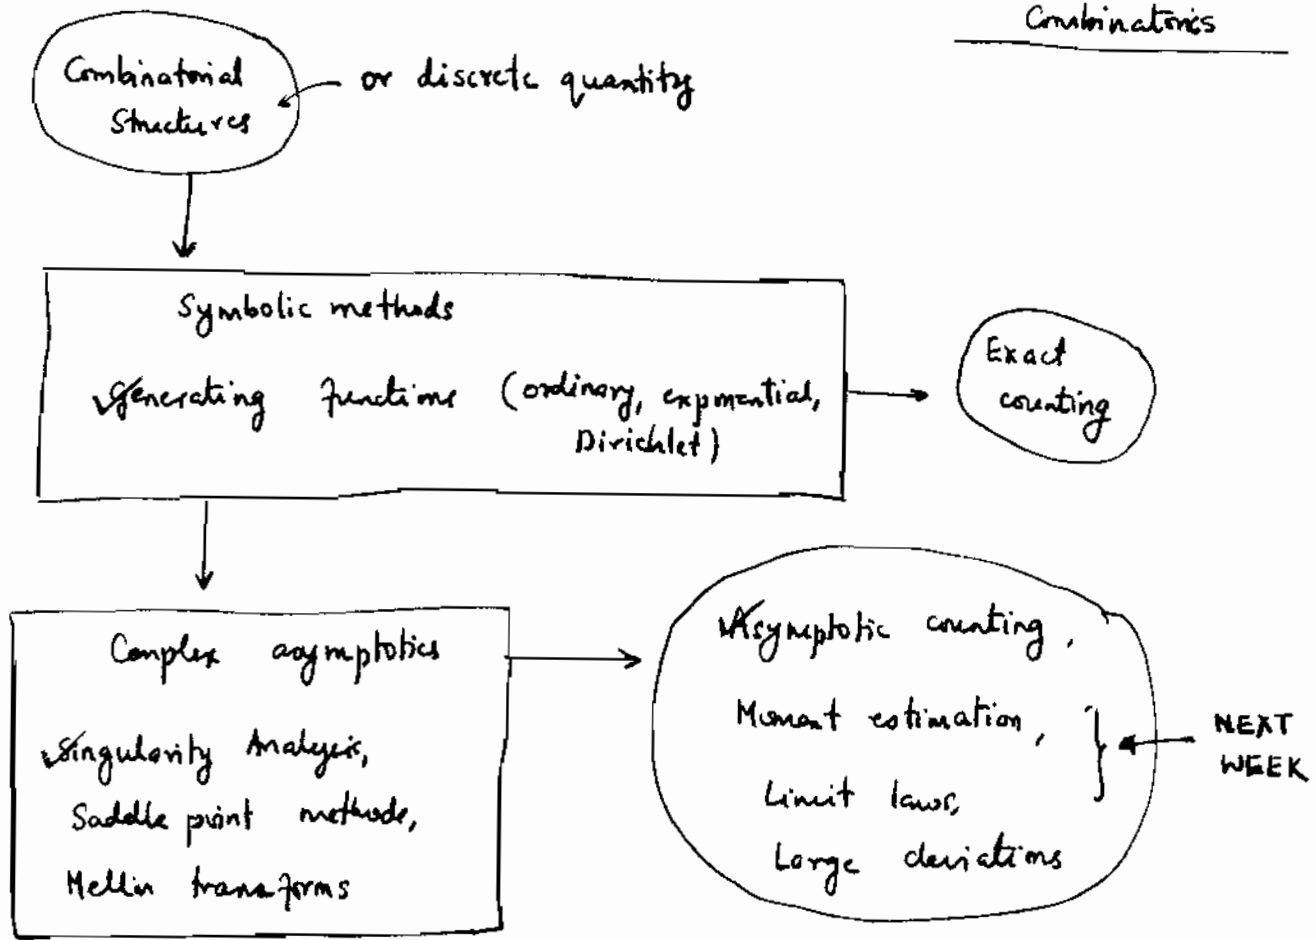 Combinatorics
Combinatorial
Structures
or discrete quantity
Symbolic methods
✓Generating functions (ordinary, exponential,
Dirichlet)
Exact
counting
Complex asymptotics
✓Singularity Analysis,
Saddle point methods,
Mellin transforms
✓Asymptotic counting,
Moment estimation,
Limit laws,
Large deviations
NEXT
WEEK